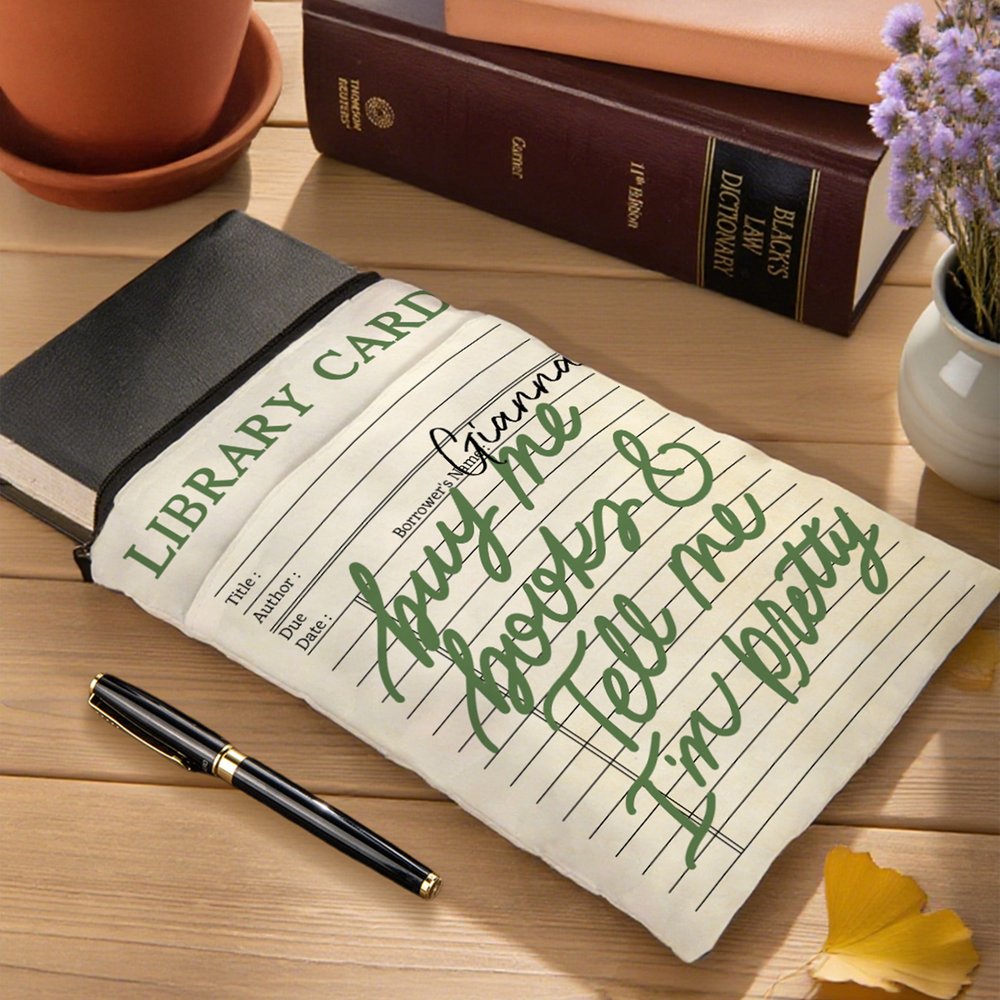 THOMSON
REUTERS
Garner
11th Edition
BLACK'S
LAW
DICTIONARY
LIBRARY CARD
Title :
Author :
Due
Date :
Borrower's Name :
Gianna
buy me
books &
Tell me
I'm pretty